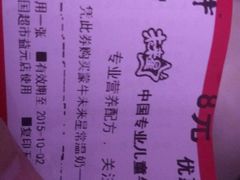 8元 优
未来星
中国专业儿童
专业营养配方，关
凭此券购买蒙牛未来星常温奶
用一张 ■有效期至2015-10-02 ■复印
国超市益元店使用